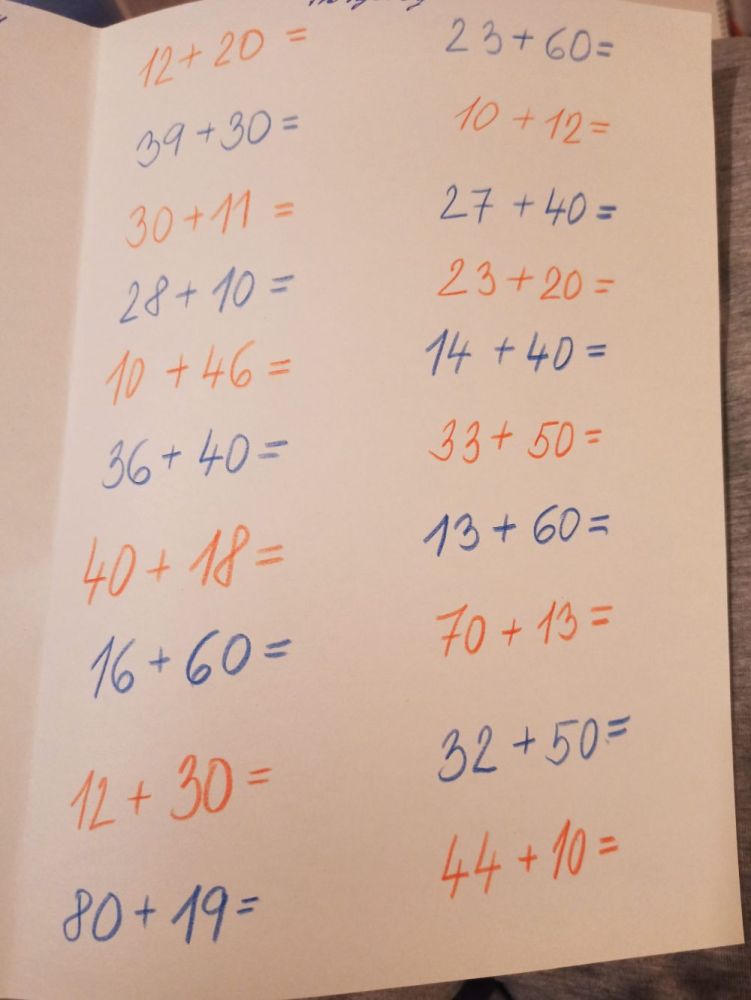 12+20 =
39+30=
30+11 =
28+10 =
10 +46=
36+40=
40+18=
16+60=
12+30=
80+19=
23+60=
10 +12=
27 +40=
23+20=
14 +40=
33+50=
13+60=
70+13=
32+50=
44+10=